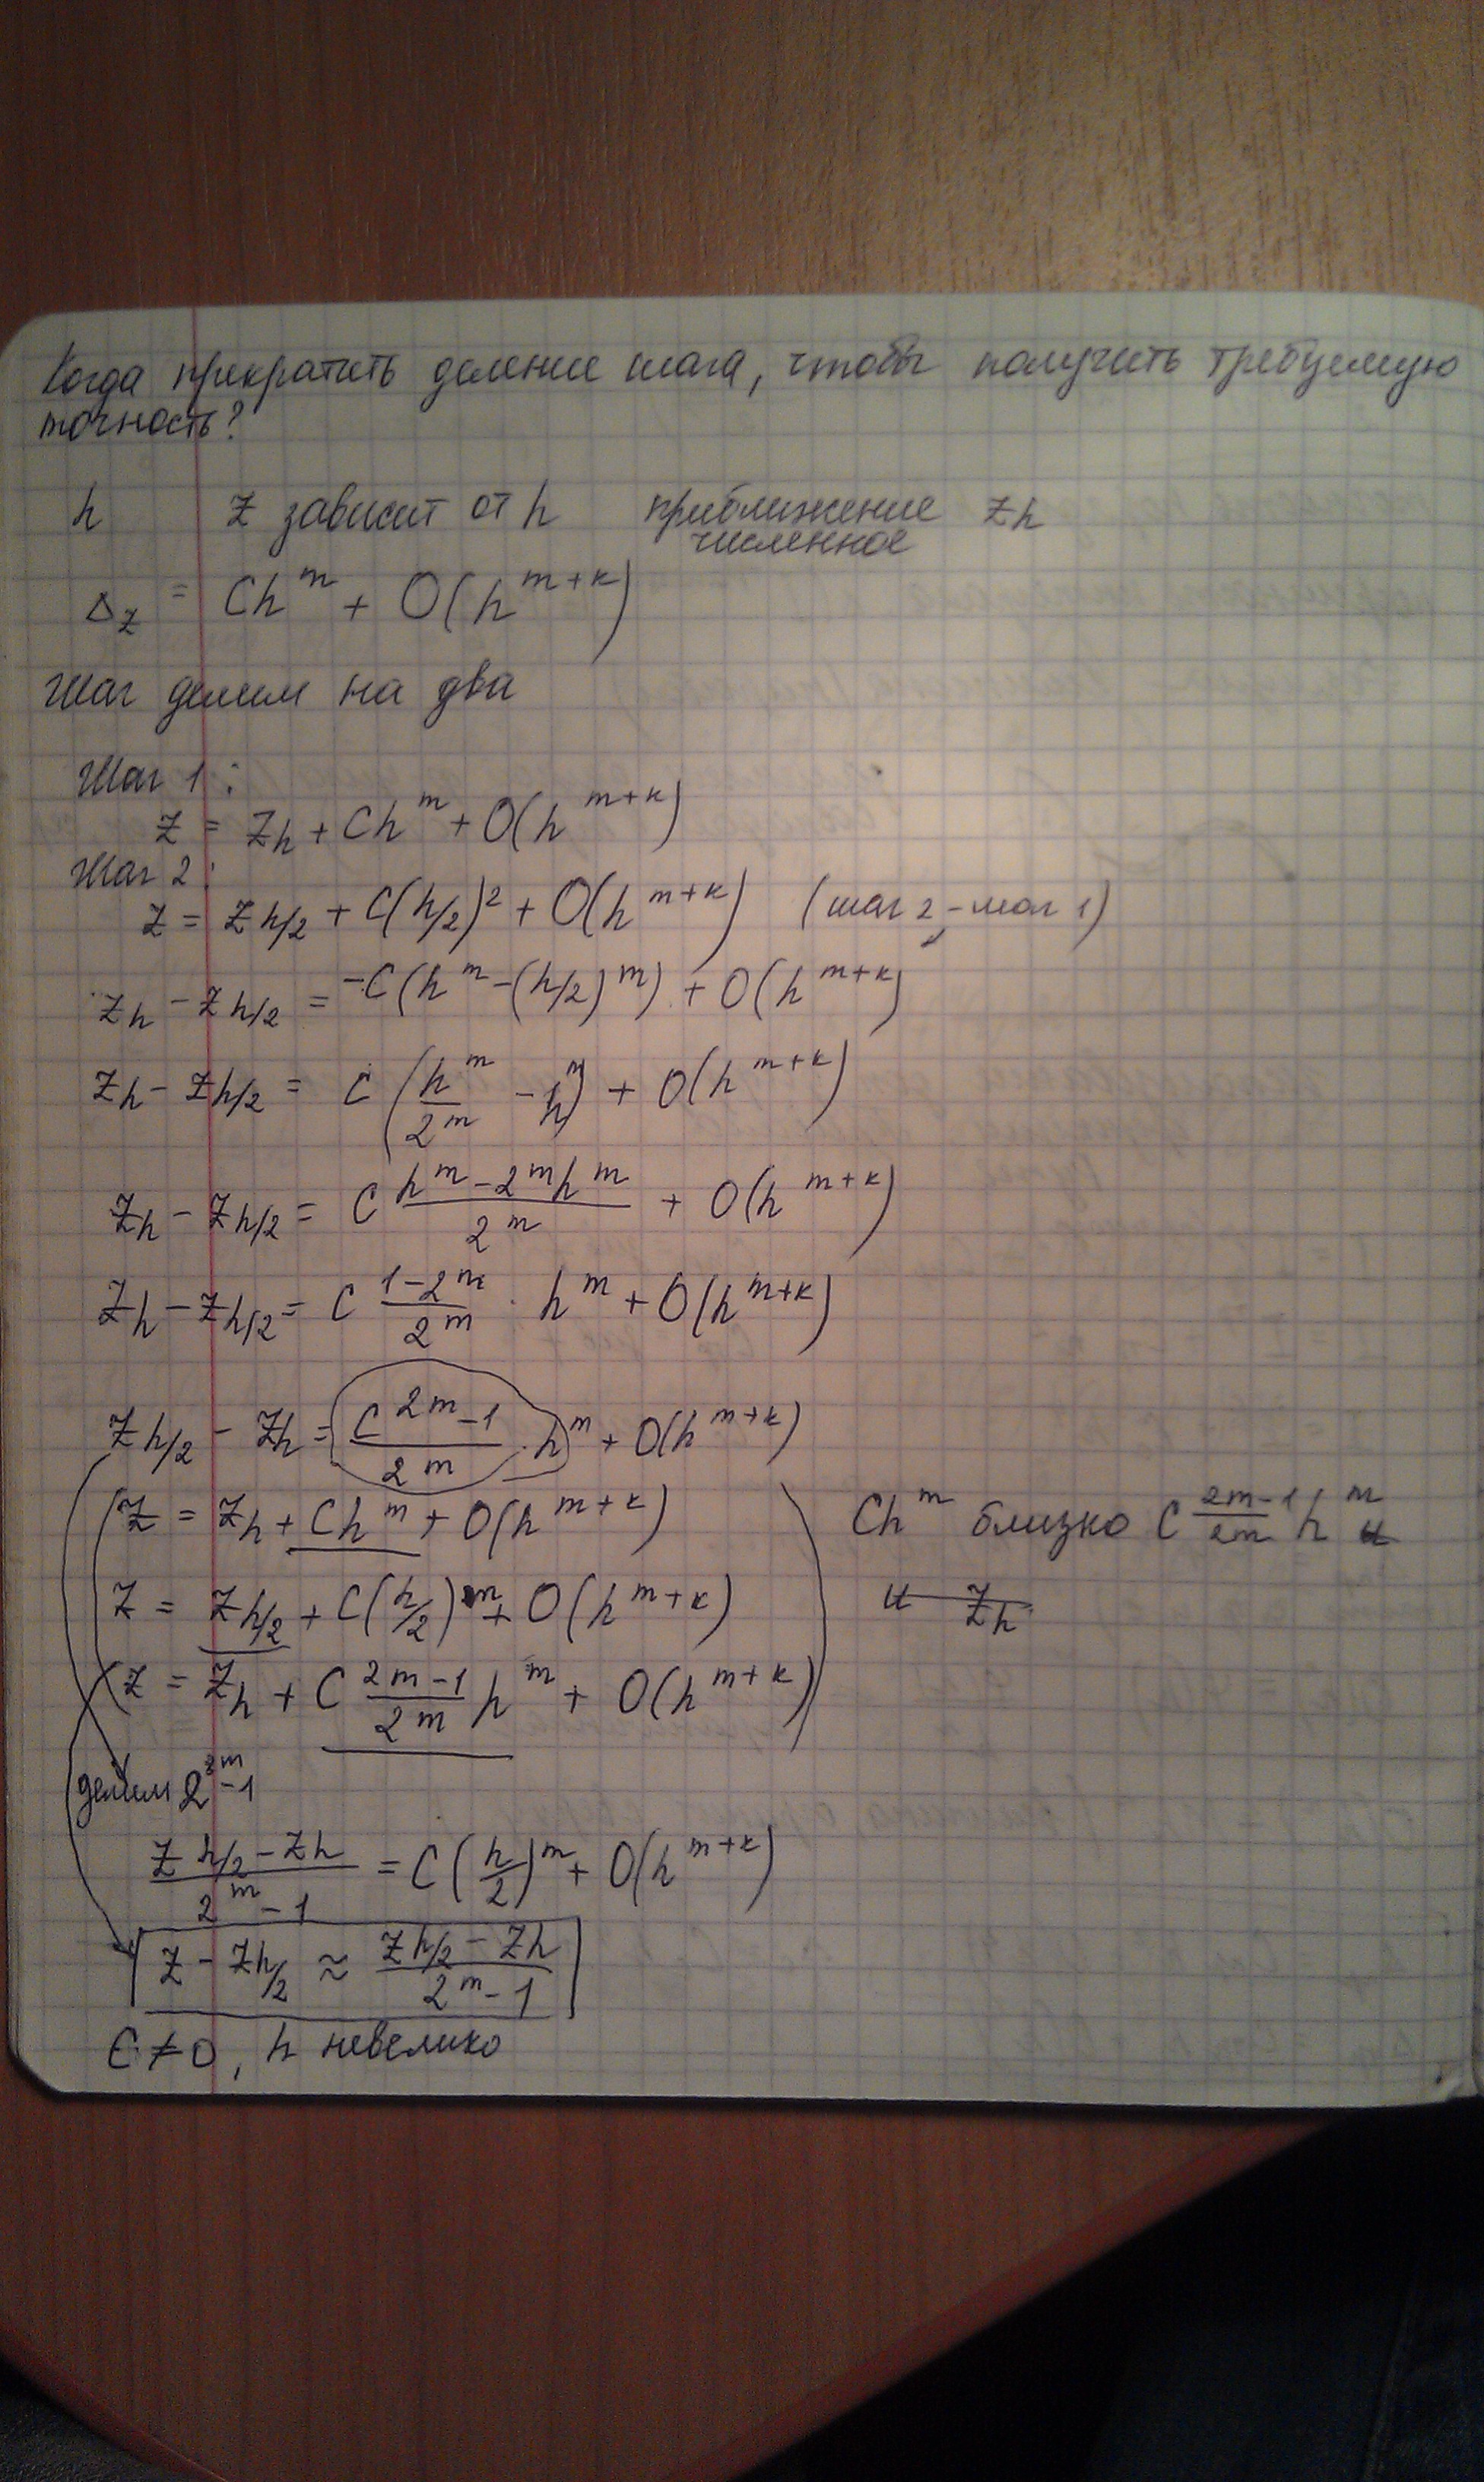 Когда прекратить деление шага, чтобы получить требуемую
точность?
h z зависит от h приближение z_h
численное
Δ_z = Ch^m + O(h^{m+k})
Шаг делим на два
Шаг 1:
z = z_h + Ch^m + O(h^{m+k})
Шаг 2:
z = z_{h/2} + C(h/2)^2 + O(h^{m+k}) (шаг 2 - шаг 1)
z_h - z_{h/2} = -C(h^m - (h/2)^m) + O(h^{m+k})
z_h - z_{h/2} = C(h^m/2^m - h^m) + O(h^{m+k})
z_h - z_{h/2} = C (h^m - 2^m h^m)/2^m + O(h^{m+k})
z_h - z_{h/2} = C (1-2^m)/2^m · h^m + O(h^{m+k})
z_{h/2} - z_h = C (2^m-1)/2^m · h^m + O(h^{m+k})
z = z_h + Ch^m + O(h^{m+k}) Ch^m близко C (2m-1)/2m h^m и
z = z_{h/2} + C(h/2)^m + O(h^{m+k}) и z_h
z = z_h + C (2m-1)/2m h^m + O(h^{m+k})
делим 2^m-1
(z_{h/2} - z_h)/(2^m - 1) = C(h/2)^m + O(h^{m+k})
z - z_{h/2} ≈ (z_{h/2} - z_h)/(2^m - 1)
C ≠ 0, h невелико